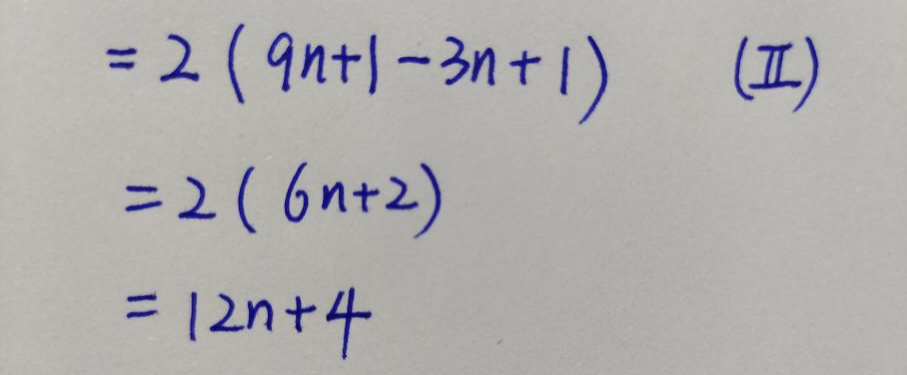 = 2 ( 9n+1 - 3n + 1 ) (II)
= 2 ( 6n+2 )
= 12n+4